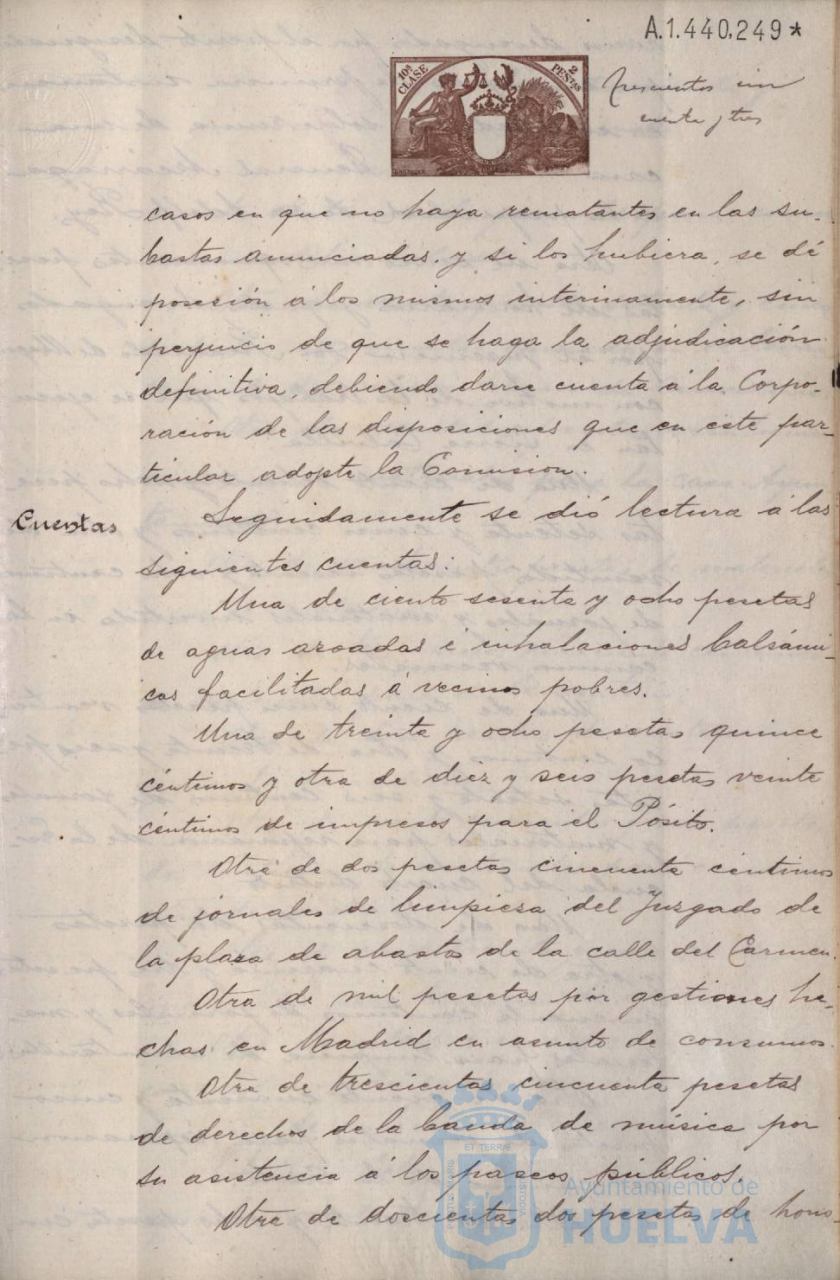 A.1.440,249*
10ª CLASE
2 PESTAS
Trescientos cin
cuenta y tres
casos en que no haya rematantes en las su-
bastas anunciadas, y si los hubiera, se dé
posesión á los mismos interinamente, sin
perjuicio de que se haga la adjudicación
definitiva, debiendo darse cuenta á la Corpo-
ración de las disposiciones que en este par-
ticular adopte la Comision.
Cuentas
Seguidamente se dió lectura á las
siguientes cuentas:
Una de ciento sesenta y ocho pesetas
de aguas azoadas é inhalaciones balsámi-
cas facilitadas á vecinos pobres.
Una de treinta y ocho pesetas quince
céntimos y otra de diez y seis pesetas veinte
céntimos de impresos para el Pósito.
Otra de dos pesetas cincuenta céntimos
de jornales de limpieza del Juzgado de
la plaza de abastos de la calle del Carmen.
Otra de mil pesetas por gestiones he-
chas en Madrid en asunto de consumos.
Otra de trescientas cincuenta pesetas
de derechos de la banda de música por
su asistencia á los paseos públicos.
Otra de doscientas dos pesetas de hono-
Ayuntamiento de
HUELVA